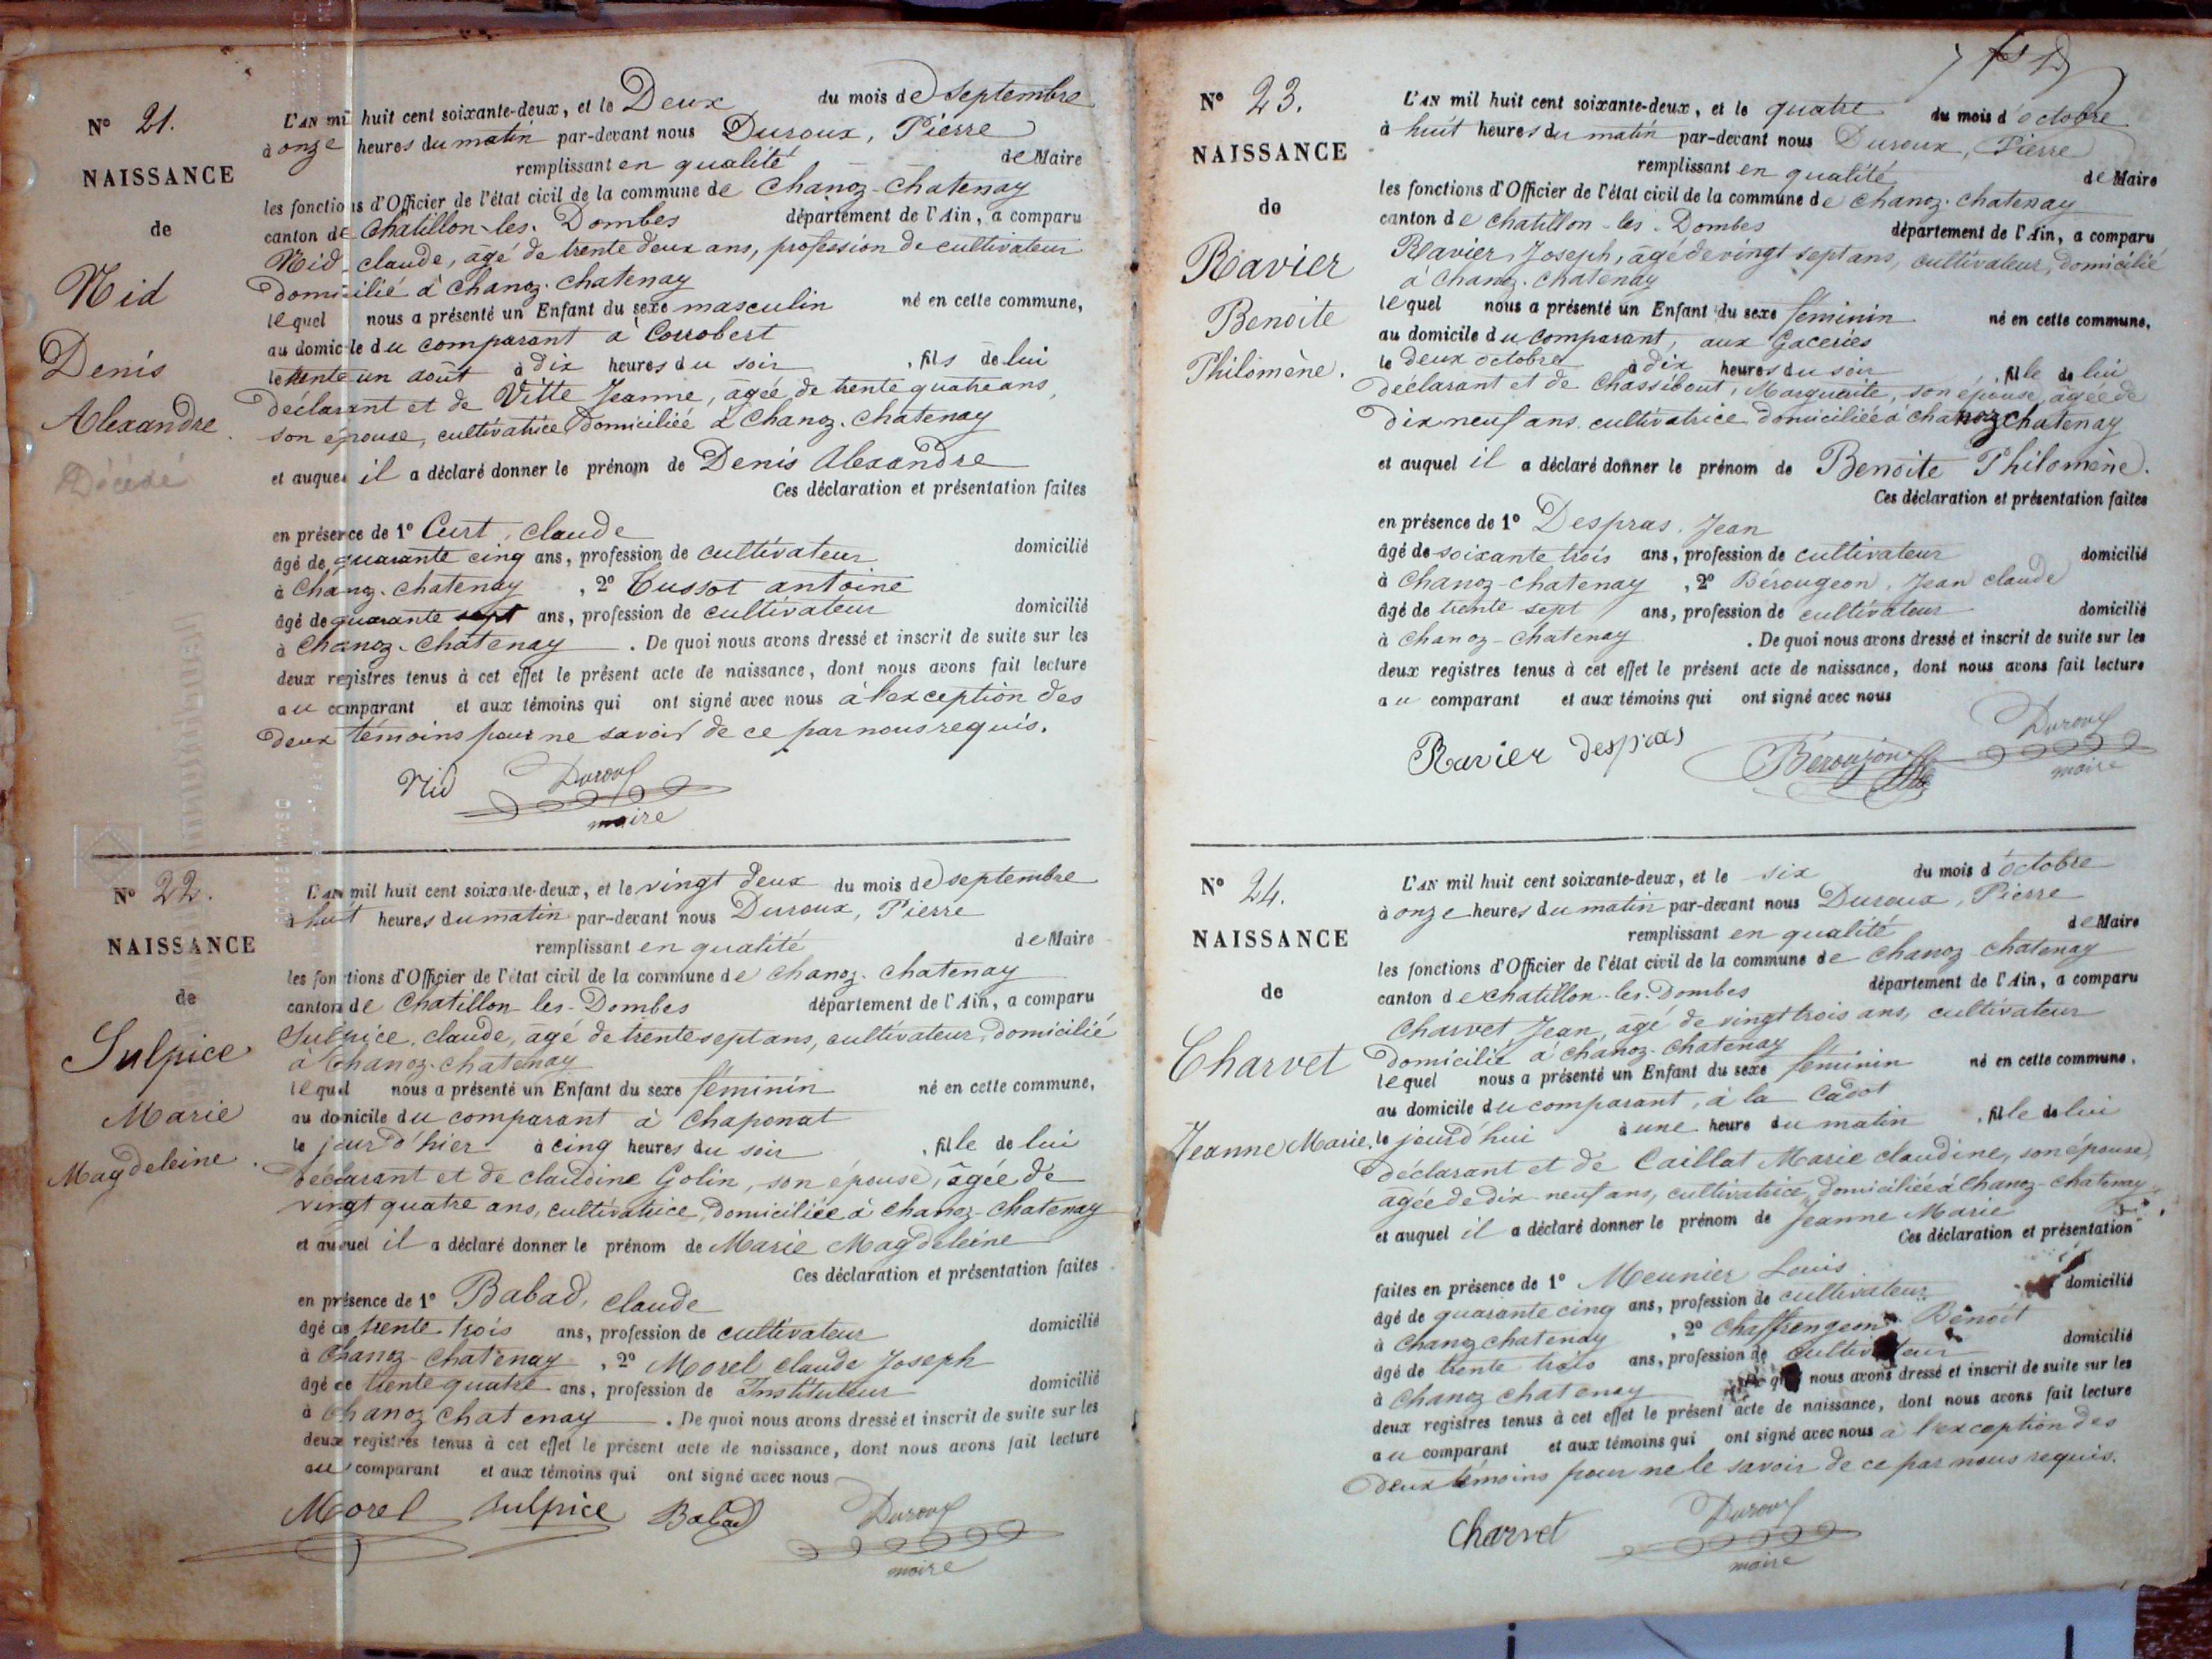 N° 21.
NAISSANCE
de
Nid
Denis
Alexandre.
Décédé
L'AN mil huit cent soixante-deux, et le Deux du mois de septembre
à onze heures du matin par-devant nous Duroux, Pierre
remplissant en qualité de Maire
les fonctions d'Officier de l'état civil de la commune de Chanoz-Chatenay
canton de Chatillon-les-Dombes département de l'Ain, a comparu
Nid claude, âgé de trente deux ans, profession de cultivateur
domicilié à Chanoz-Chatenay
lequel nous a présenté un Enfant du sexe masculin né en cette commune,
au domicile du comparant à Corrobert
le trente un août à dix heures du soir, fils de lui
déclarant et de Vitte Jeanne, âgée de trente quatre ans,
son épouse, cultivatrice domiciliée à Chanoz-Chatenay
et auquel il a déclaré donner le prénom de Denis Alexandre
Ces déclaration et présentation faites
en présence de 1° Curt, claude
âgé de quarante cinq ans, profession de cultivateur domicilié
à Chanoz-Chatenay, 2° Cussot antoine
âgé de quarante sept ans, profession de cultivateur domicilié
à Chanoz-Chatenay. De quoi nous avons dressé et inscrit de suite sur les
deux registres tenus à cet effet le présent acte de naissance, dont nous avons fait lecture
au comparant et aux témoins qui ont signé avec nous à l'exception des
deux témoins pour ne savoir de ce par nous requis.
Nid Duroux
maire
N° 22.
NAISSANCE
de
Sulpice
Marie
Magdeleine.
L'AN mil huit cent soixante-deux, et le vingt deux du mois de septembre
à huit heures du matin par-devant nous Duroux, Pierre
remplissant en qualité de Maire
les fonctions d'Officier de l'état civil de la commune de Chanoz-Chatenay
canton de Chatillon-les-Dombes département de l'Ain, a comparu
Sulpice, claude, âgé de trente sept ans, cultivateur, domicilié
à Chanoz-Chatenay
lequel nous a présenté un Enfant du sexe féminin né en cette commune,
au domicile du comparant à Chaponat
le jour d'hier à cinq heures du soir, fille de lui
déclarant et de claudine Golin, son épouse, âgée de
vingt quatre ans, cultivatrice, domiciliée à Chanoz-Chatenay
et auquel il a déclaré donner le prénom de Marie Magdeleine
Ces déclaration et présentation faites
en présence de 1° Babad, claude
âgé de trente trois ans, profession de cultivateur domicilié
à Chanoz-Chatenay, 2° Morel claude Joseph
âgé de trente quatre ans, profession de Instituteur domicilié
à Chanoz Chatenay. De quoi nous avons dressé et inscrit de suite sur les
deux registres tenus à cet effet le présent acte de naissance, dont nous avons fait lecture
au comparant et aux témoins qui ont signé avec nous
Morel Sulpice Babad Duroux
maire
N° 23.
NAISSANCE
de
Ravier
Benoite
Philomène.
L'AN mil huit cent soixante-deux, et le quatre du mois d'octobre
à huit heures du matin par-devant nous Duroux, Pierre
remplissant en qualité de Maire
les fonctions d'Officier de l'état civil de la commune de Chanoz-Chatenay
canton de Chatillon-les-Dombes département de l'Ain, a comparu
Ravier, Joseph, âgé de vingt sept ans, cultivateur, domicilié
à Chanoz-Chatenay
lequel nous a présenté un Enfant du sexe féminin né en cette commune,
au domicile du comparant, aux Gaceries
le deux octobre à dix heures du soir, fille de lui
déclarant et de Chassibout, Marguerite, son épouse, âgée de
dix neuf ans. cultivatrice domiciliée à Chanoz Chatenay
et auquel il a déclaré donner le prénom de Benoite Philomène.
Ces déclaration et présentation faites
en présence de 1° Despras, Jean
âgé de soixante trois ans, profession de cultivateur domicilié
à Chanoz-Chatenay, 2° Bérougeon, Jean claude
âgé de trente sept ans, profession de cultivateur domicilié
à Chanoz-Chatenay. De quoi nous avons dressé et inscrit de suite sur les
deux registres tenus à cet effet le présent acte de naissance, dont nous avons fait lecture
au comparant et aux témoins qui ont signé avec nous
Ravier despras Béroujon Duroux
maire
N° 24.
NAISSANCE
de
Charvet
Jeanne Marie.
L'AN mil huit cent soixante-deux, et le six du mois d'octobre
à onze heures du matin par-devant nous Duroux, Pierre
remplissant en qualité de Maire
les fonctions d'Officier de l'état civil de la commune de Chanoz-Chatenay
canton de Chatillon-les-Dombes département de l'Ain, a comparu
Charvet Jean, âgé de vingt trois ans, cultivateur
domicilié à Chanoz-Chatenay
lequel nous a présenté un Enfant du sexe féminin né en cette commune,
au domicile du comparant, à la Cadot
le jourd'hui à une heure du matin, fille de lui
déclarant et de Caillat Marie claudine, son épouse,
âgée de dix-neuf ans, cultivatrice, domiciliée à Chanoz-Chatenay
et auquel il a déclaré donner le prénom de Jeanne Marie
Ces déclaration et présentation
faites en présence de 1° Meunier Louis
âgé de quarante cinq ans, profession de cultivateur domicilié
à Chanoz Chatenay, 2° Chaffrengeon Benoit
âgé de trente trois ans, profession de cultivateur domicilié
à Chanoz Chatenay De quoi nous avons dressé et inscrit de suite sur les
deux registres tenus à cet effet le présent acte de naissance, dont nous avons fait lecture
au comparant et aux témoins qui ont signé avec nous à l'exception des
deux témoins pour ne le savoir de ce par nous requis.
Charvet Duroux
maire